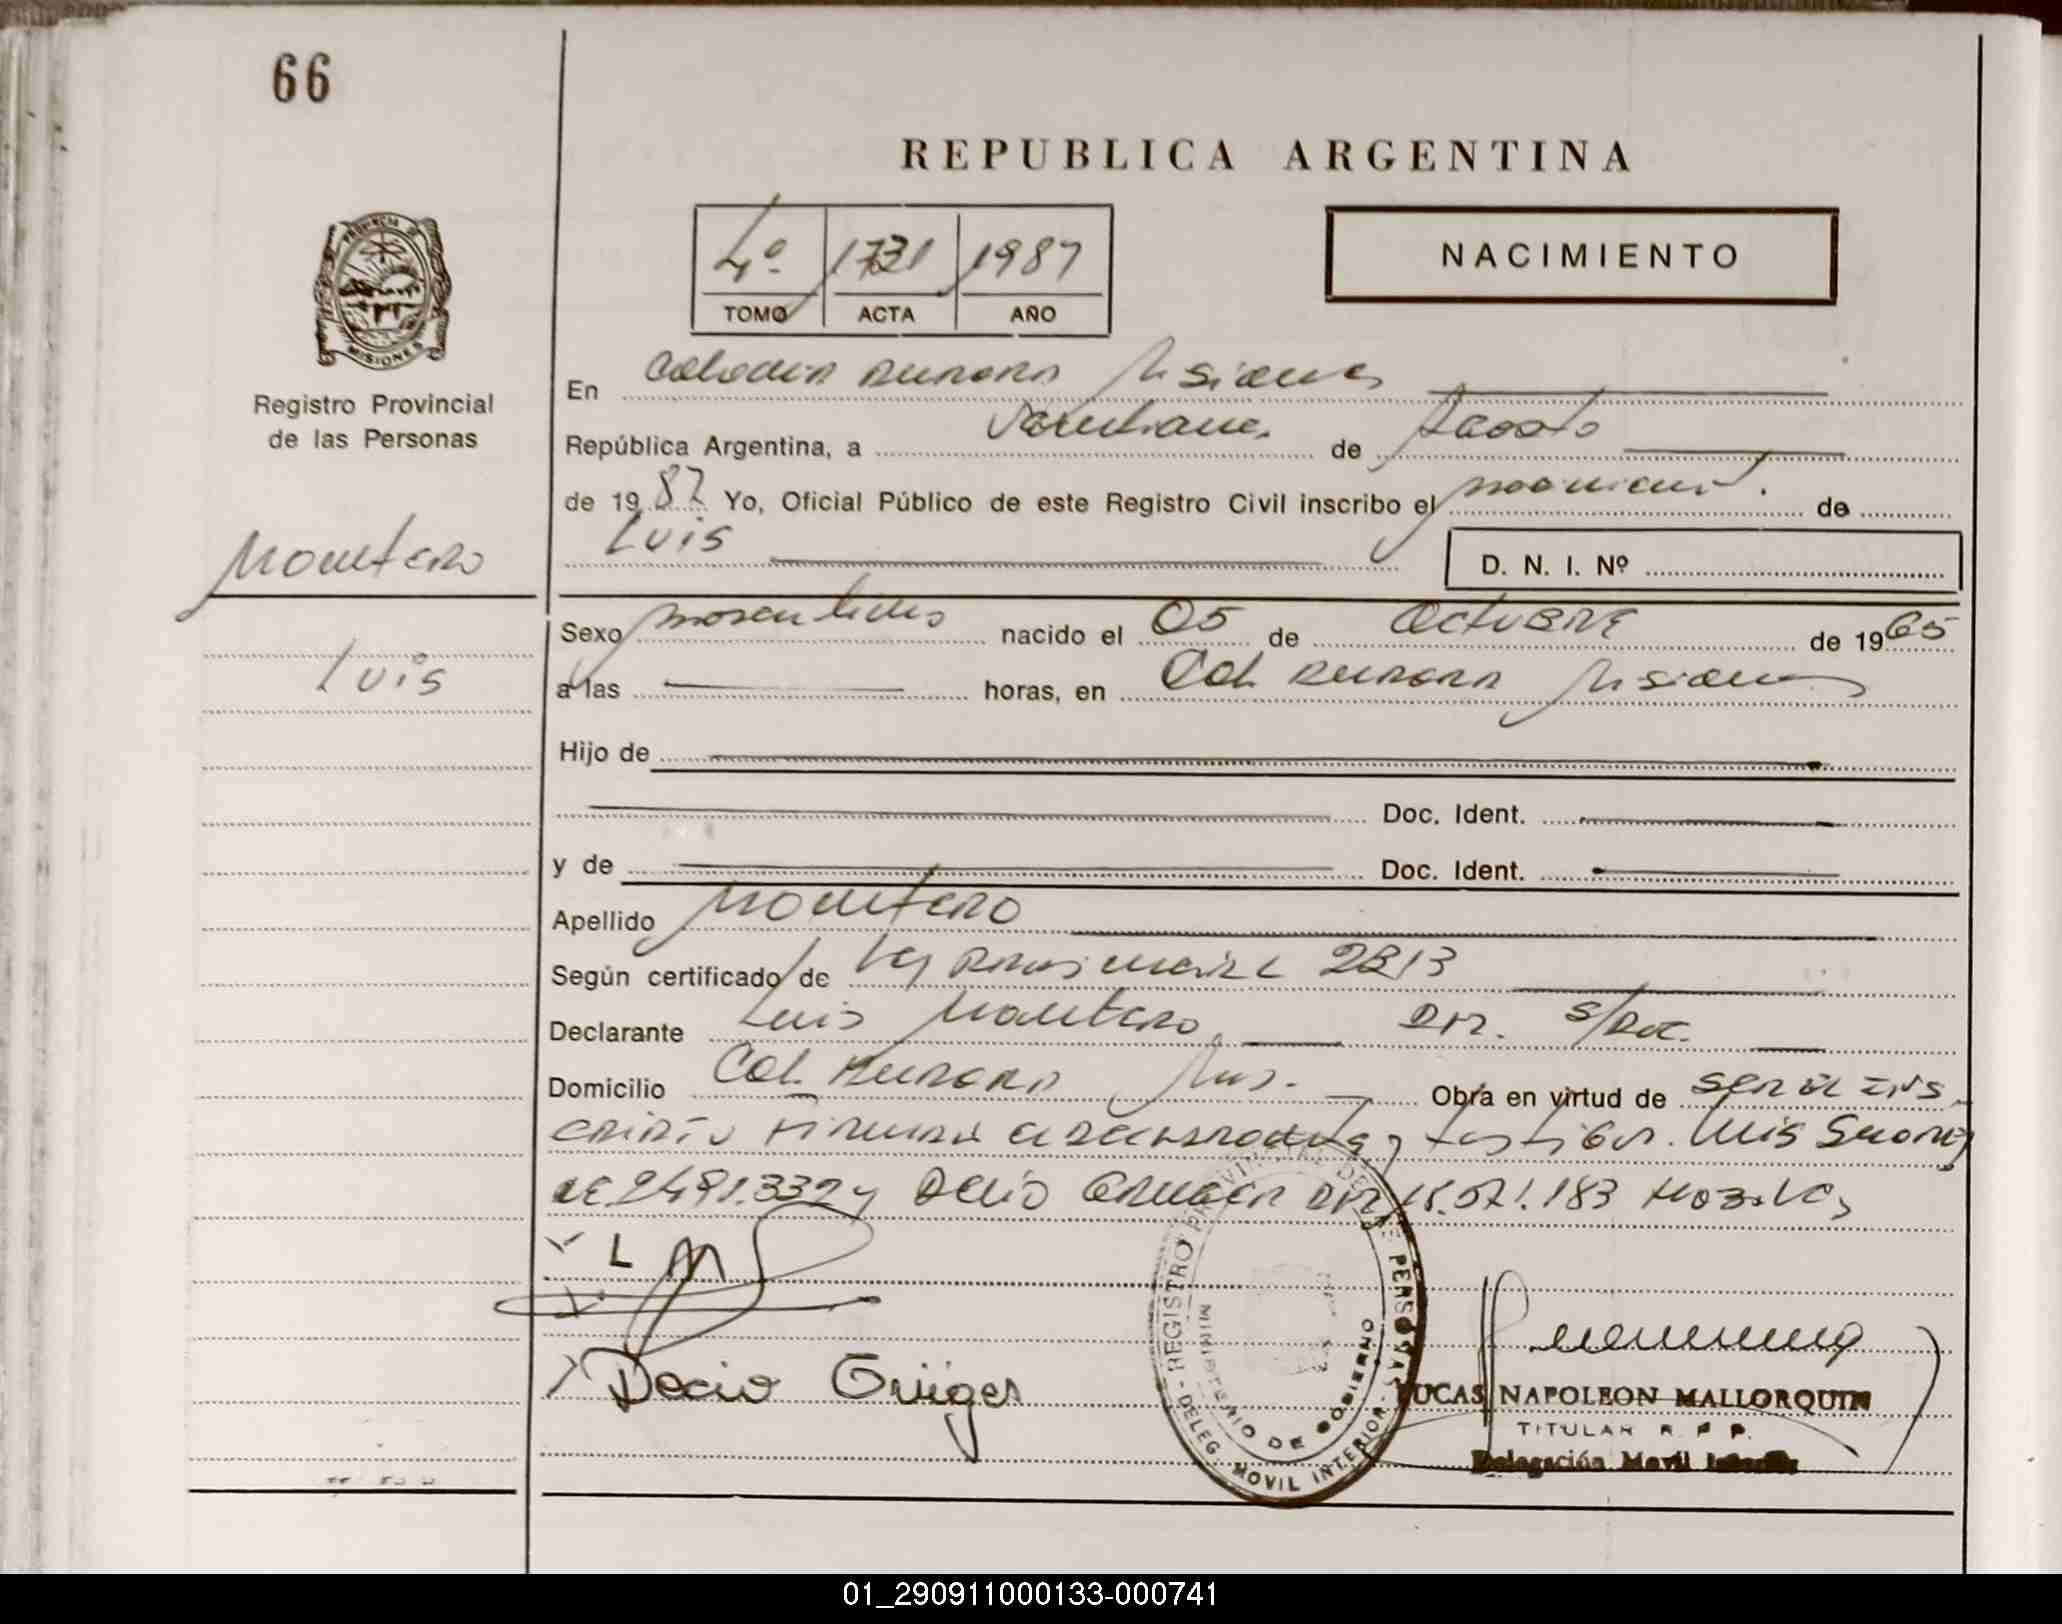 66
REPUBLICA ARGENTINA
PROVINCIA D
MISIONES
Registro Provincial
de las Personas
4º 1731 1987
TOMO ACTA AÑO
NACIMIENTO
En Colonia Aurora Misiones
República Argentina, a Veintinueve de Agosto
de 1987 Yo, Oficial Público de este Registro Civil inscribo el nacimiento de
Luis
D. N. I. Nº
Montero
Luis
Sexo masculino nacido el 05 de Octubre de 1965
a las horas, en Col. Aurora Misiones
Hijo de
Doc. Ident.
y de Doc. Ident.
Apellido Montero
Según certificado de Ley Provincial 2213
Declarante Luis Montero DNI. S/Doc.
Domicilio Col. Aurora Mnes. Obra en virtud de ser el ins-
cripto Firman declarante y testigos. Luis
DNI 18.071.183
L M
Decio Grüger
REGISTRO PROVINCIAL DE LAS PERSONAS
MINISTERIO DE GOBIERNO
DELEG. MOVIL INTERIOR
LUCAS NAPOLEON MALLORQUIN
TITULAR R. P. P.
Delegación Movil Interior
01_290911000133-000741